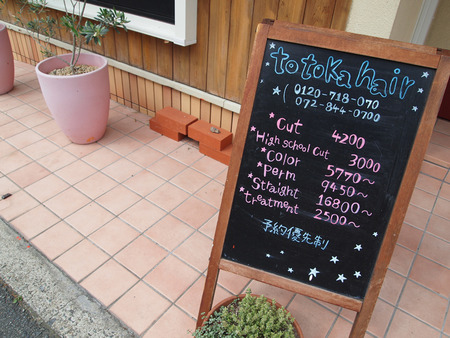 totoka hair
0120-718-070
072-844-0700
Cut 4200
High school Cut 3000
Color 5770~
Perm 9450~
Straight 16800~
treatment 2500~
予約優先制